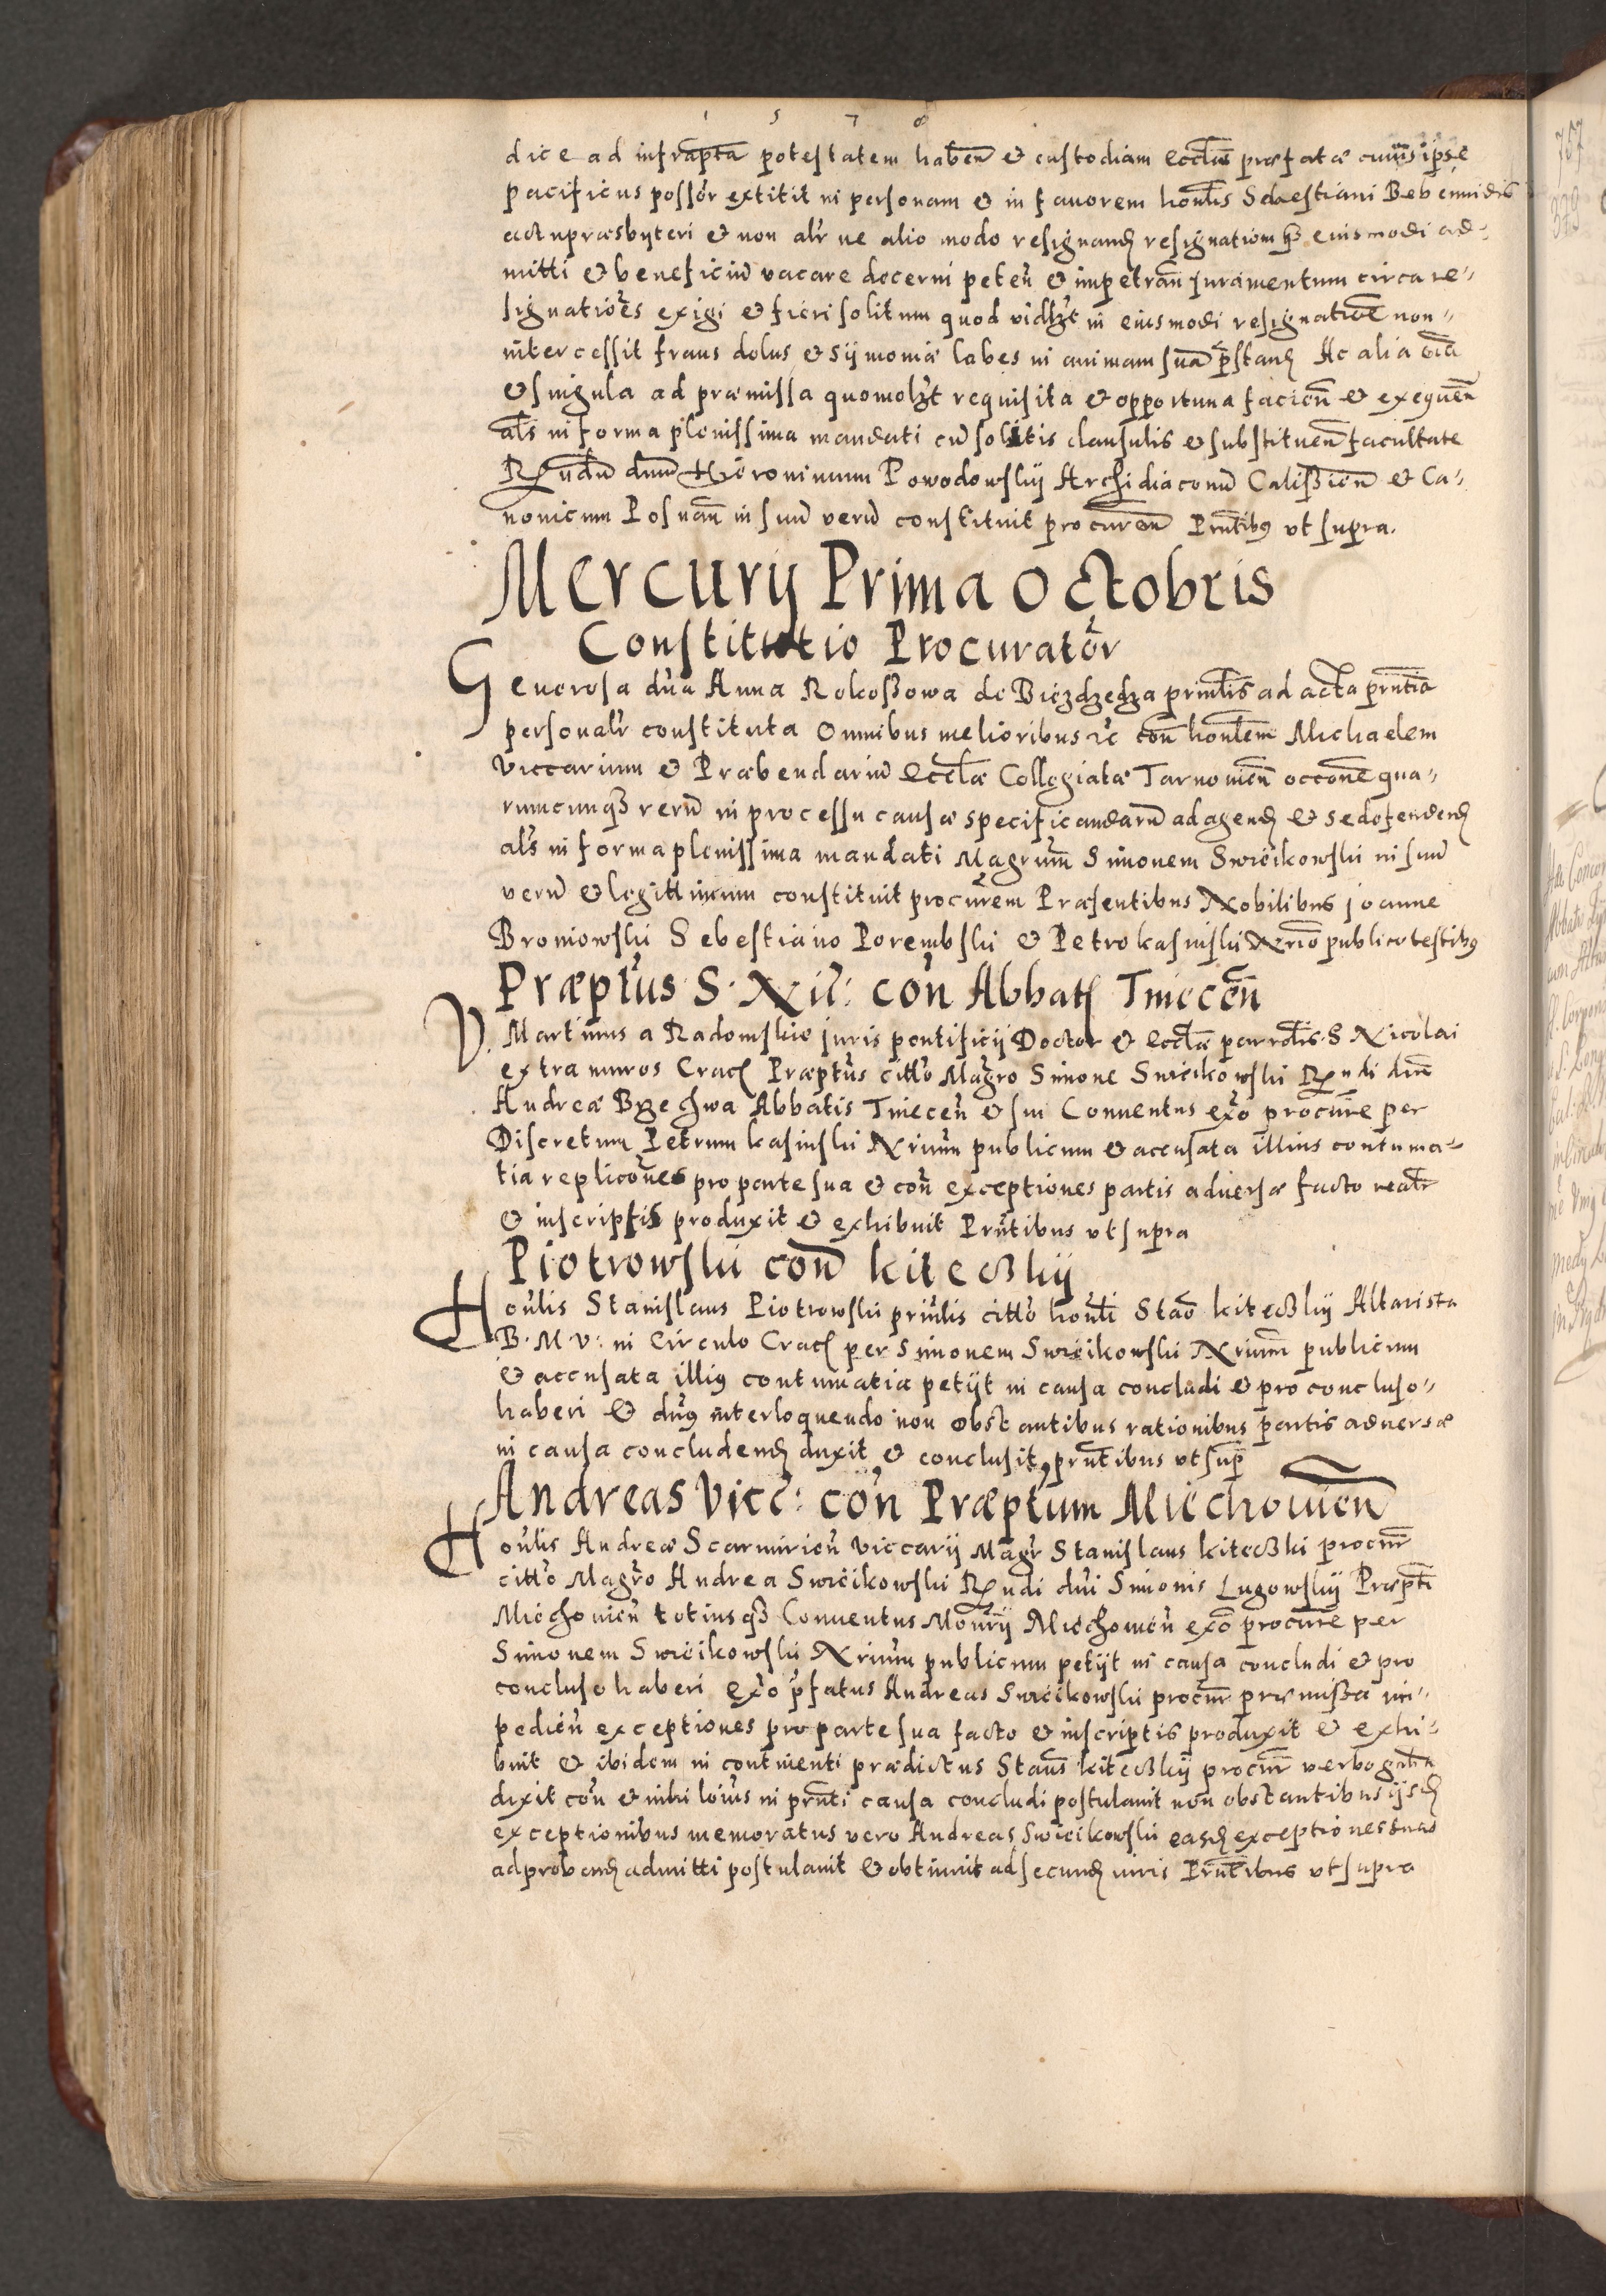 1 5 7 8
dice ad infrapta potestatem haben et custodiam ecclæ præfatæ cuius ipse
pacificus possor extitit in personam et in fauorem honlis Sebestiani
actu præsbyteri et non alr ue alio modo resignand resignationemqз eiusmodi ad-
mitti et beneficiu vacare decerni peten et impetran Juramentum circa re-
signationes exigi et fieri solitum quod vidlzt in eiusmodi resignatione non-
intercessit fraus dolus et syimoniæ labes in animam sua pstand Ac alia oia
et singula ad præmissa quomolzt requisita et opportuna facien et exequen
als in forma plenissima mandati cu solitis clausulis et substituen facultate
Rndu dnu Hieronimum Powodowskij Archidiaconu Calissien et Ca-
nonicum Posnan in suu veru constituit procurem Pntibus vt supra.
Mercurij Prima Octobris
Constitutio Procurator
Generosa dna Anna Rokossowa de Biezdzedza prinlis ad acta prntia
personalr constituta Omnibus melioribus etc con honlem Michaelem
Viccarium et Præbendariu Ecclæ Collegiatæ Tarnouien occone qua-
rumcunqз reru in processu causæ specificandaru ad agend et se defendend
als in forma plenissima mandati Magrum Simonem Swiėikowskii in suu
veru et legittimum constituit procurem Præsentibus Nobilibus Joanne
Broniowskii Sebestiano Porembskii et Petro kasinskii Nrio publico testibus
Præptus S. Nil: con Abbat Tinecen
V. Martinus a Radomskio juris pontificij Doctor et Ecclæ parrolis S Nicolai
extra muros Crac Præptus citto Magro Simone Swiėikowskii Rndi dni
Andreæ Brzechwa Abbatis Tinecen et sui Conuentus exo procure per
Discretum Petrum kasinskii Nrium publicum et accusata illius contuma-
tia replicones pro parte sua et con exceptiones partis aduersæ facto realr
et inscriptis produxit et exhibuit Prntibus vt supra
Piotrowskii con kiteczkij
Honlis Stanislaus Piotrowskii prinlis citto honli Stao kiteczkij Altarista
B. M. V: in Circulo Crac per Simonem Swiėikowskii Nrium publicum
et accusata illius contumatia petijt in causa concludi et pro concluso-
haberi et dnus interloquendo non obstantibus rationibus partis aduersæ
in causa concludend duxit et conclusit prntibus vt supr
Andreas Vicc: con Præptum Miechouien
Honlis Andreæ Scarmirien Viccarij Magr Stanislaus kiteczki procur
citto Magro Andrea Swiėikowskii Rndi dni Simonis Lugowskij Præpti
Miechouien totiusqз Conuentus Monrij Miechouien exo procure per
Simonem Swiėikowskii Nrium publicum petijt in causa concludi et pro
concluso haberi Exo pfatus Andreas Swiėikowskii procur præmissa im-
pedien exceptiones pro parte sua facto et inscriptis produxit et exhi-
buit et ibidem in continenti prædictus Staus kiteczkij procur verbo gnlia
dixit con et nihilominus in prnti causa concludi postulauit non obstantibus ijsd
exceptionibus memoratus vero Andreas Swiėikowskii easd exceptiones suas
ad proband admitti postulauit et obtinuit ad secund iuris Prntibus vt supra